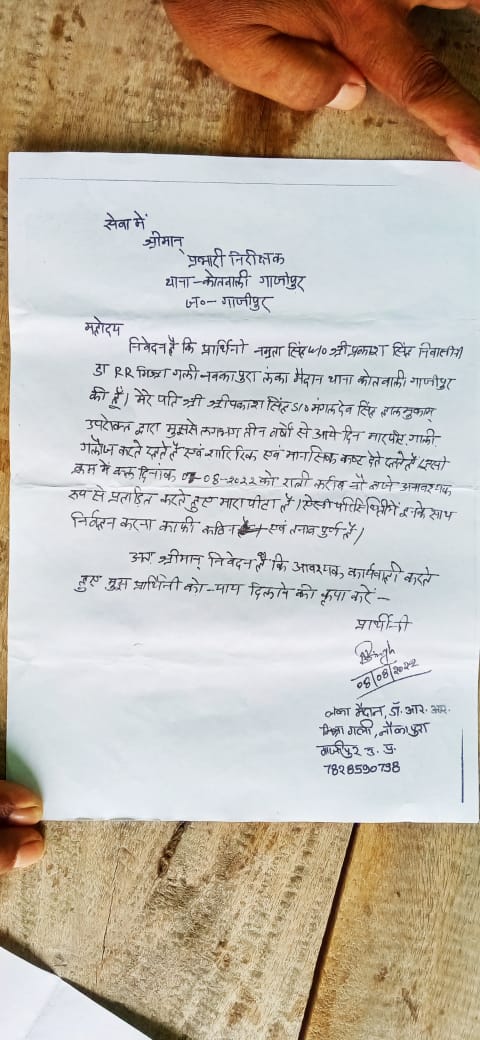 सेवा में
श्रीमान्
प्रभारी निरीक्षक
थाना - कोतवाली गाजीपुर
ज०- गाजीपुर
महोदय
निवेदन है कि प्रार्थिनी नम्रता सिंह w/o श्री प्रकाश सिंह निवासीनी
डा RR मिश्रा गली नवकापुरा लंका मैदान थाना कोतवाली गाजीपुर
की हूँ। मेरे पति श्री श्रीप्रकाश सिंह S/O मंगलदेव सिंह हाल मुकाम
उपरोक्त द्वारा मुझसे लगभग तीन वर्षों से आये दिन मारपीट, गाली
गलौज करते रहते हैं एवं शारिरिक एवं मानसिक कष्ट देते रहते हैं। इसी
क्रम में कल दिनांक 07-08-2022 को रात्री करीब नौ बजे अनावश्यक
रूप से प्रताड़ित करते हुए मारा पीटा है। ऐसी परिस्थिति में इनके साथ
निर्वहन करना काफी कठिन एवं तनाव पूर्ण है।
अतः श्रीमान् निवेदन है कि आवश्यक कार्यवाही करते
हुए मुझ प्रार्थिनी को न्याय दिलाने की कृपा करें -
प्रार्थीनी
08/08/2022
लंका मैदान, डॉ. आर. आर.
मिश्रा गली, नौकापुरा
गाजीपुर उ. प्र.
7828590738